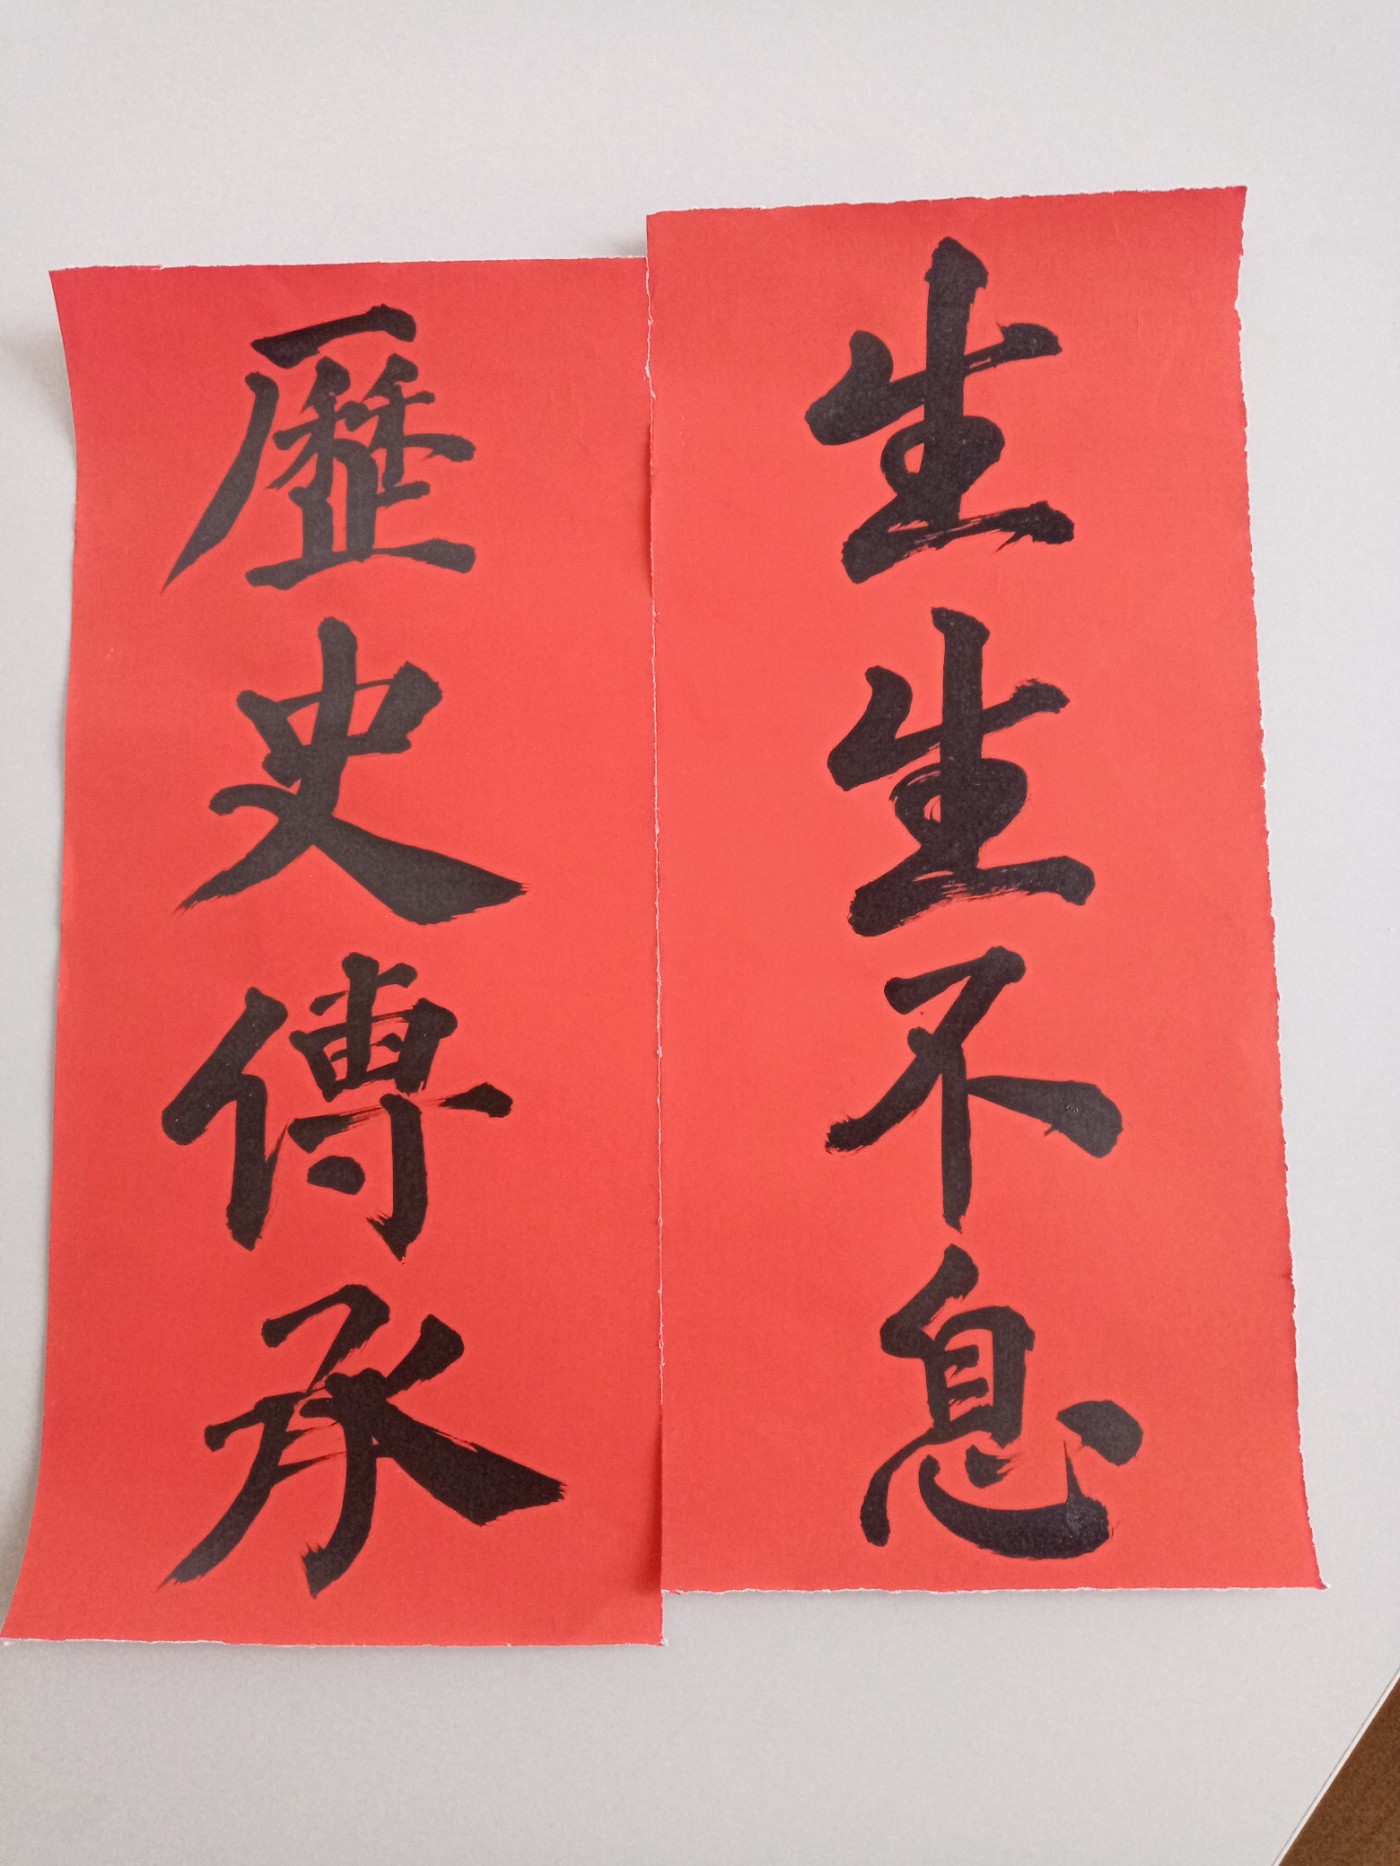 生生不息
歷史傳承